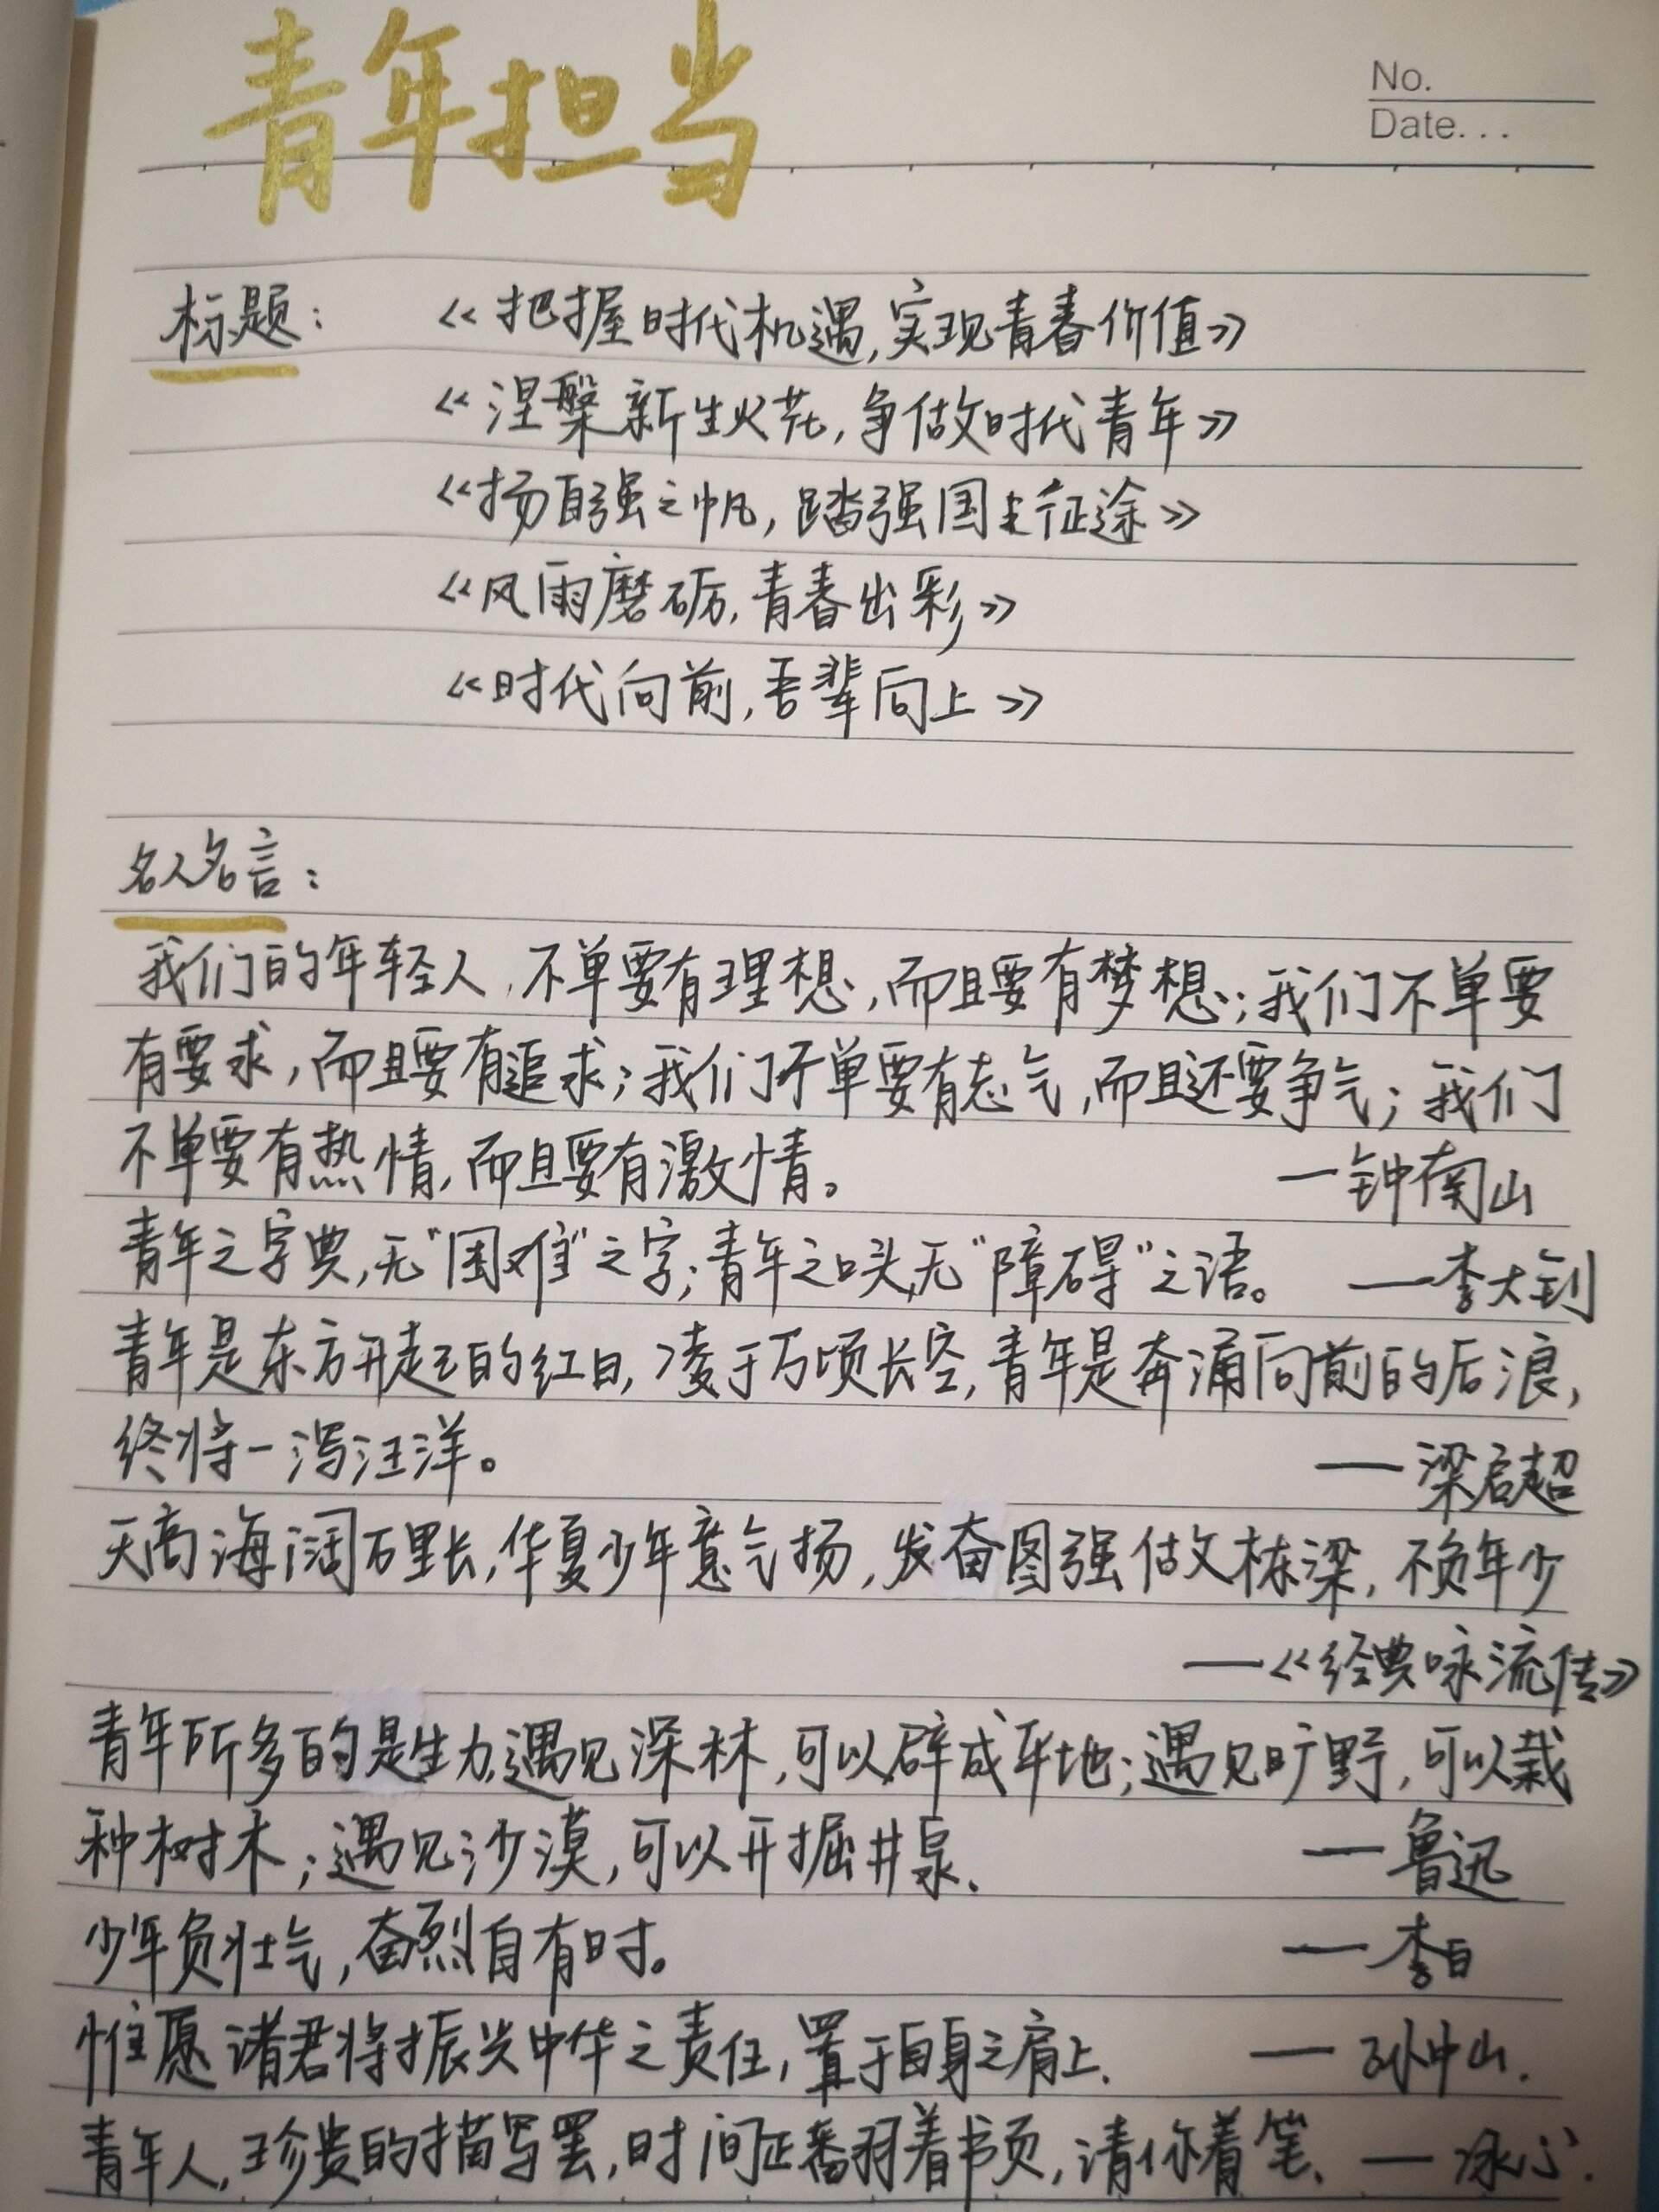 青年担当
No.
Date...
标题：
《把握时代机遇,实现青春价值》
《涅槃新生火花,争做时代青年》
《扬自强之帆,踏强国之征途》
《风雨磨砺,青春出彩》
《时代向前,吾辈向上》
名人名言：
我们的年轻人,不单要有理想,而且要有梦想;我们不单要
有要求,而且要有追求;我们不单要有志气,而且还要争气;我们
不单要有热情,而且要有激情。 —钟南山
青年之字典,无"困难"之字;青年之口头,无"障碍"之语。 ——李大钊
青年是东方升起的红日,凌于万顷长空,青年是奔涌向前的后浪,
终将一泻汪洋。 ——梁启超
天高海阔万里长,华夏少年意气扬,发奋图强做栋梁,不负年少
——《经典咏流传》
青年所多的是生力,遇见深林,可以辟成平地;遇见旷野,可以栽
种树木;遇见沙漠,可以开掘井泉、 ——鲁迅
少年负壮气,奋烈自有时。 ——李白
惟愿诸君将振兴中华之责任,置于自身之肩上. ——孙中山.
青年人,珍贵的描写罢,时间正翻着书页,请你着笔、 ——冰心.